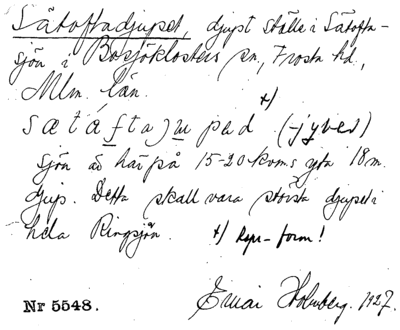 Sätoftadjupet, djupt ställe i Sätofta-
sjön i Bosjöklosters sn, Frosta hd,
Mlm. län.
x)
(-jyved)
sjön är här på 15-20 kvm:s yta 18 m.
djup. Detta skall vara största djupet i
hela Ringsjön. x) Repr-form!
Nr 5548. Holmberg. 1927.